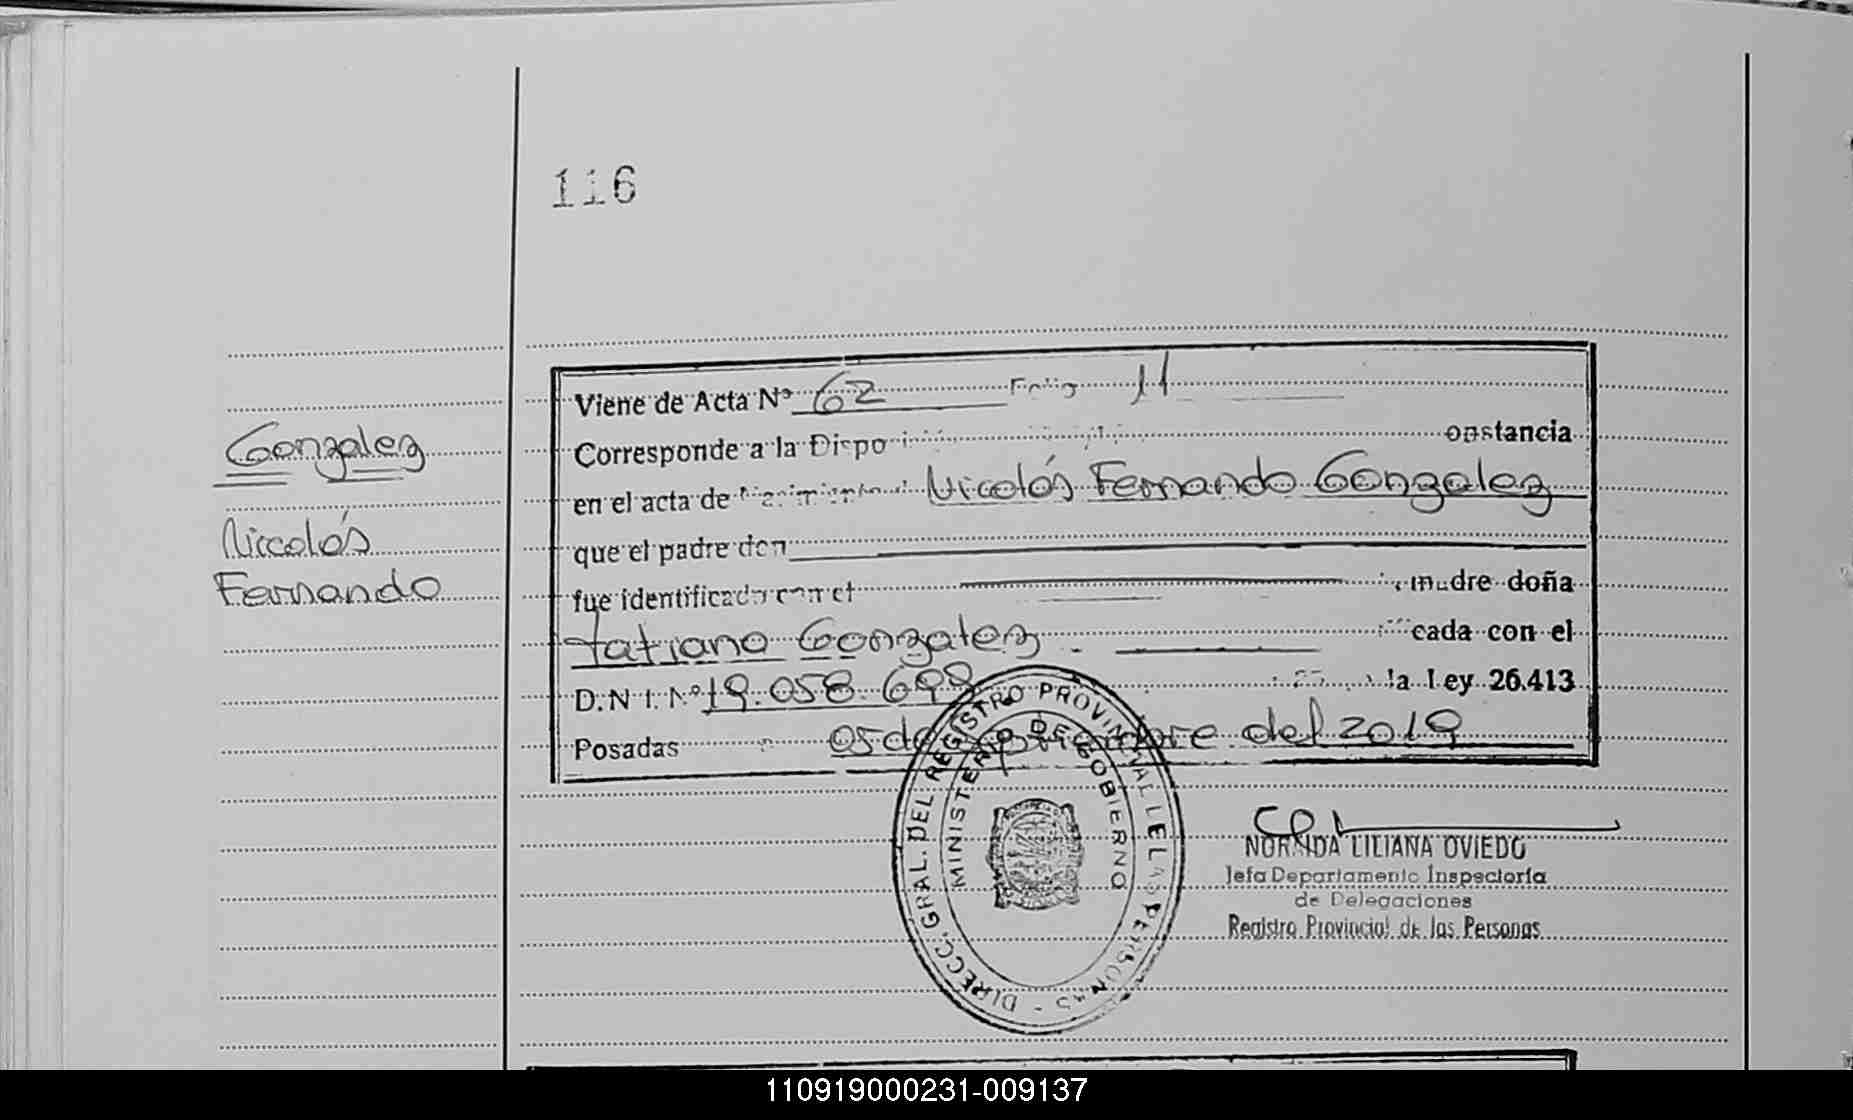 116
Viene de Acta Nº 62 Folio 11
Corresponde a la Dispo
onstancia
Gonzalez
en el acta de Nacimiento Nicolás Fernando Gonzalez
Nicolás
que el padre don
Fernando
fue identificado con el madre doña
Tatiana Gonzalez cada con el
D.N.I. Nº 19.058.698 la Ley 26.413
Posadas 05 de septiembre del 2019
DIRECC. GRAL. DEL REGISTRO PROVINCIAL DE LAS PERSONAS
MINISTERIO DE GOBIERNO
NORMDA LILIANA OVIEDO
Jefa Departamento Inspectoría
de Delegaciones
Registro Provincial de las Personas
110919000231-009137